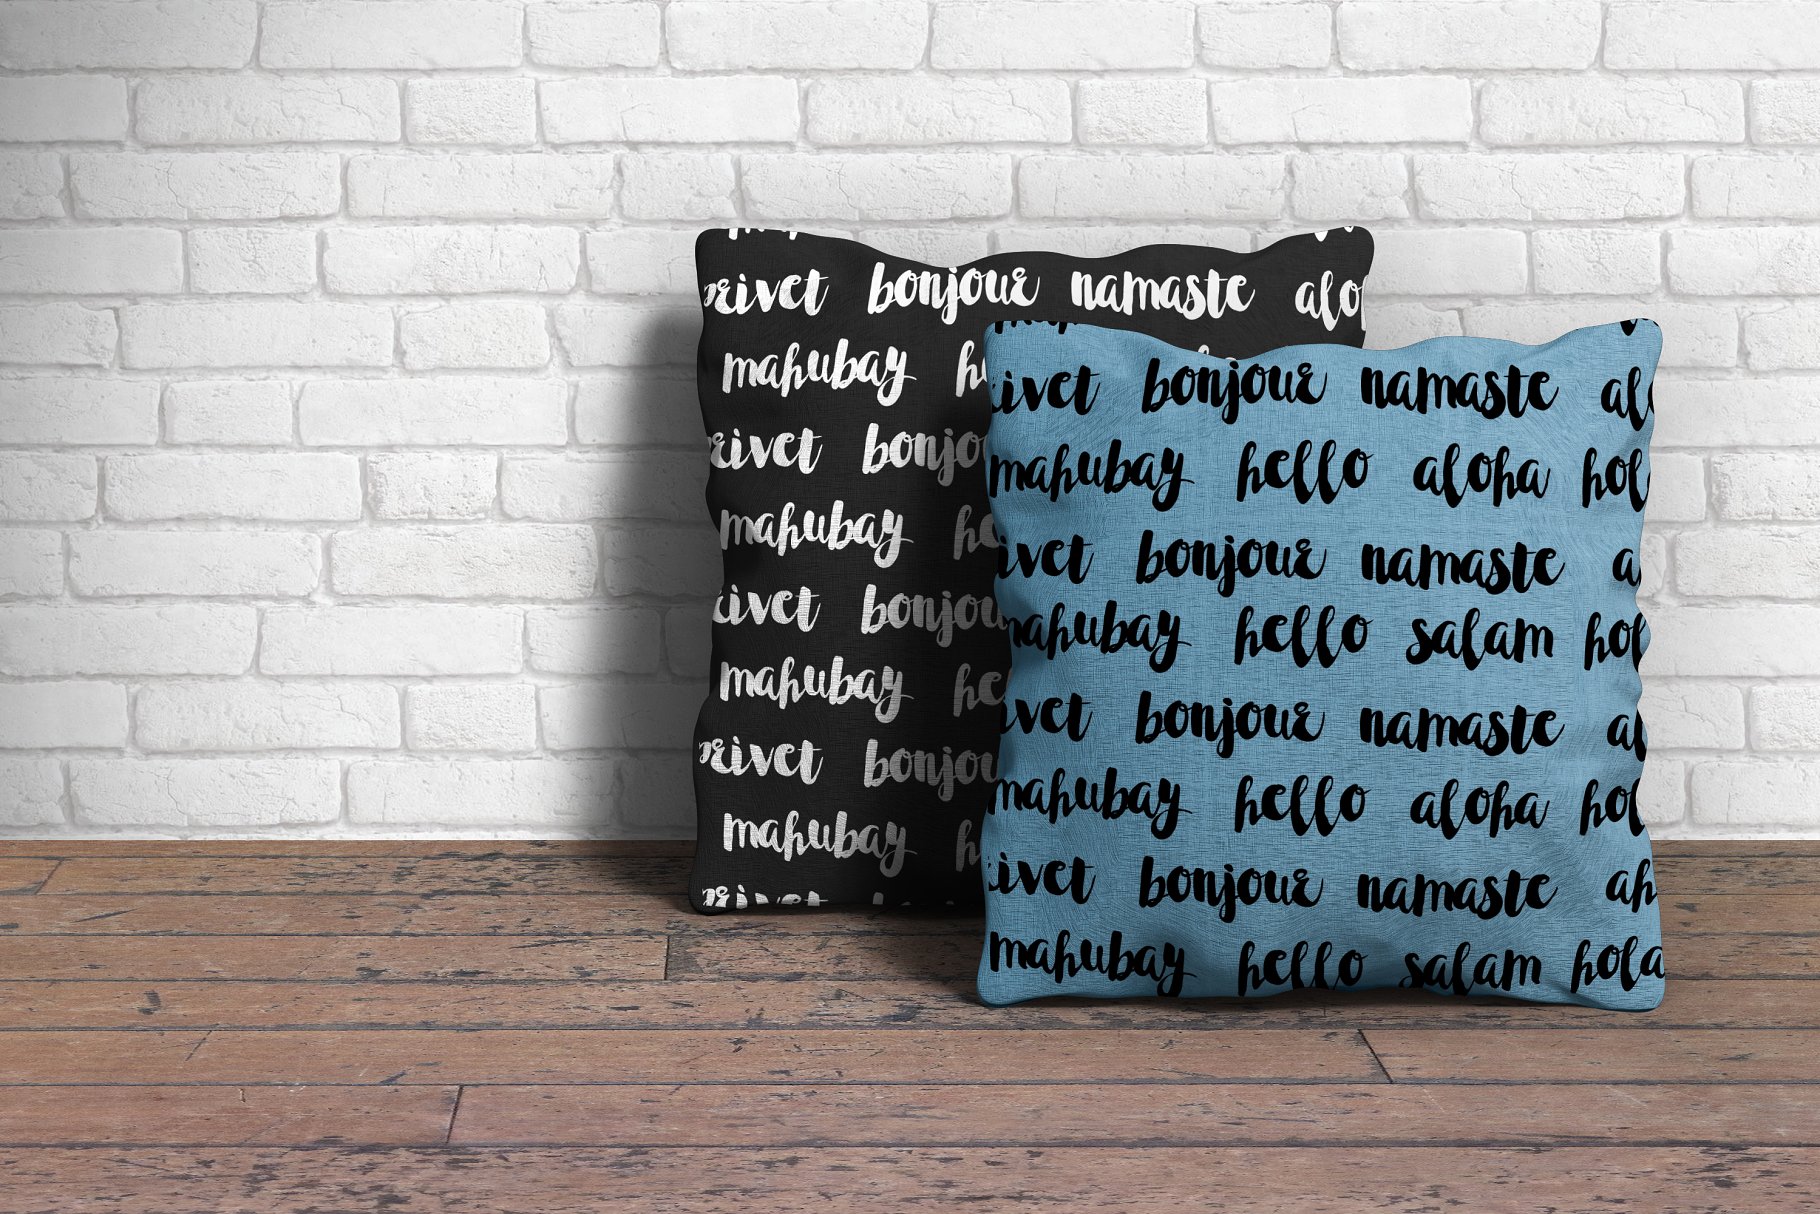 privet bonjour namaste alo
mahubay he
rivet bonjo
mahubay he
rivet bonjou
mahubay he
privet bonjou
mahubay he
privet
rivet bonjour namaste alo
mahubay hello aloha hola
ivet bonjour namaste a
mahubay hello salam hol
ivet bonjour namaste al
mahubay hello aloha hol
rivet bonjour namaste ah
mahubay hello salam hola